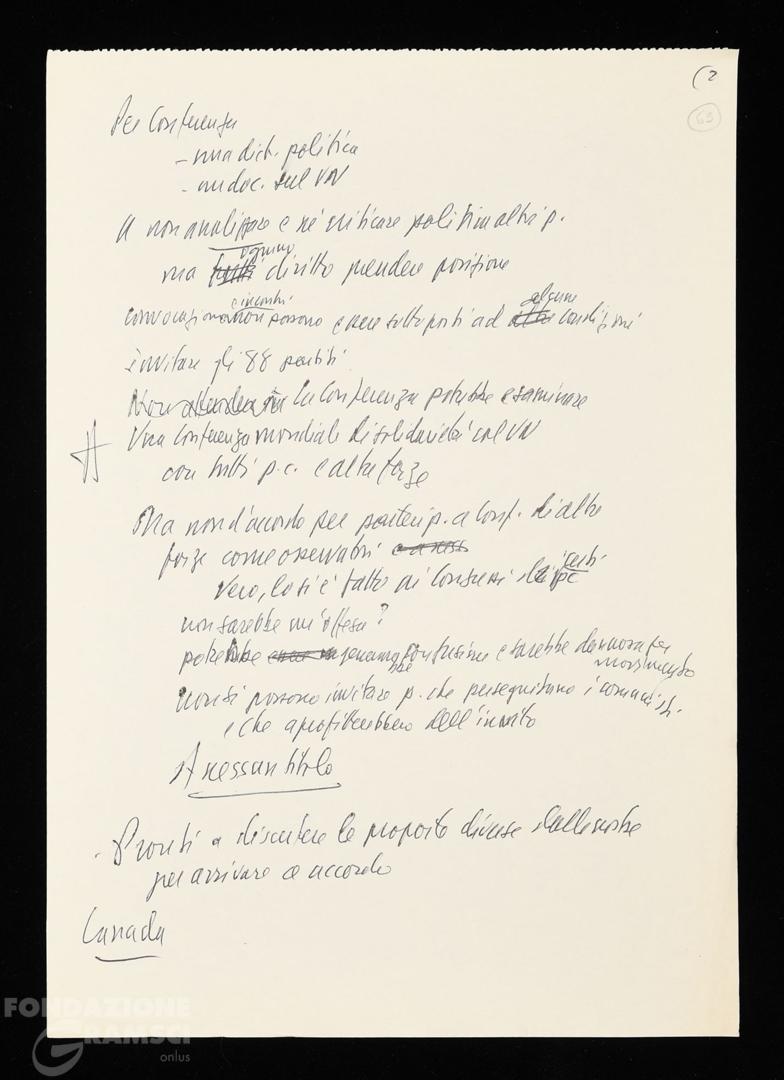 (2
63
Per Conferenza
- una dich. politica
- un doc. sul VN
non analizzare e né criticare politica altri p.
ognuno
ma tutti diritto prendere posizione
e incontri alcune
convocazione non possono essere sottoposti ad altre condizioni
invitare gli 88 partiti
La Conferenza potrebbe esaminare
Una Conferenza mondiale di solidarietà col VN
con tutti p.c. e altre forze
Ma non d'accordo per partecip. a Conf. di altre
forze come osservatori
certi
Vero, lo si è fatto ai Congressi dei pc
non sarebbe un'offesa?
potrebbe confusione e sarebbe dannosa per
movimento
non si possono invitare p. che perseguitano i comunisti
e che approfitterebbero dell'invito
A nessun titolo
- Pronti a discutere le proposte diverse dalle nostre
per arrivare a accordo
Canada
FONDAZIONE
GRAMSCI
onlus